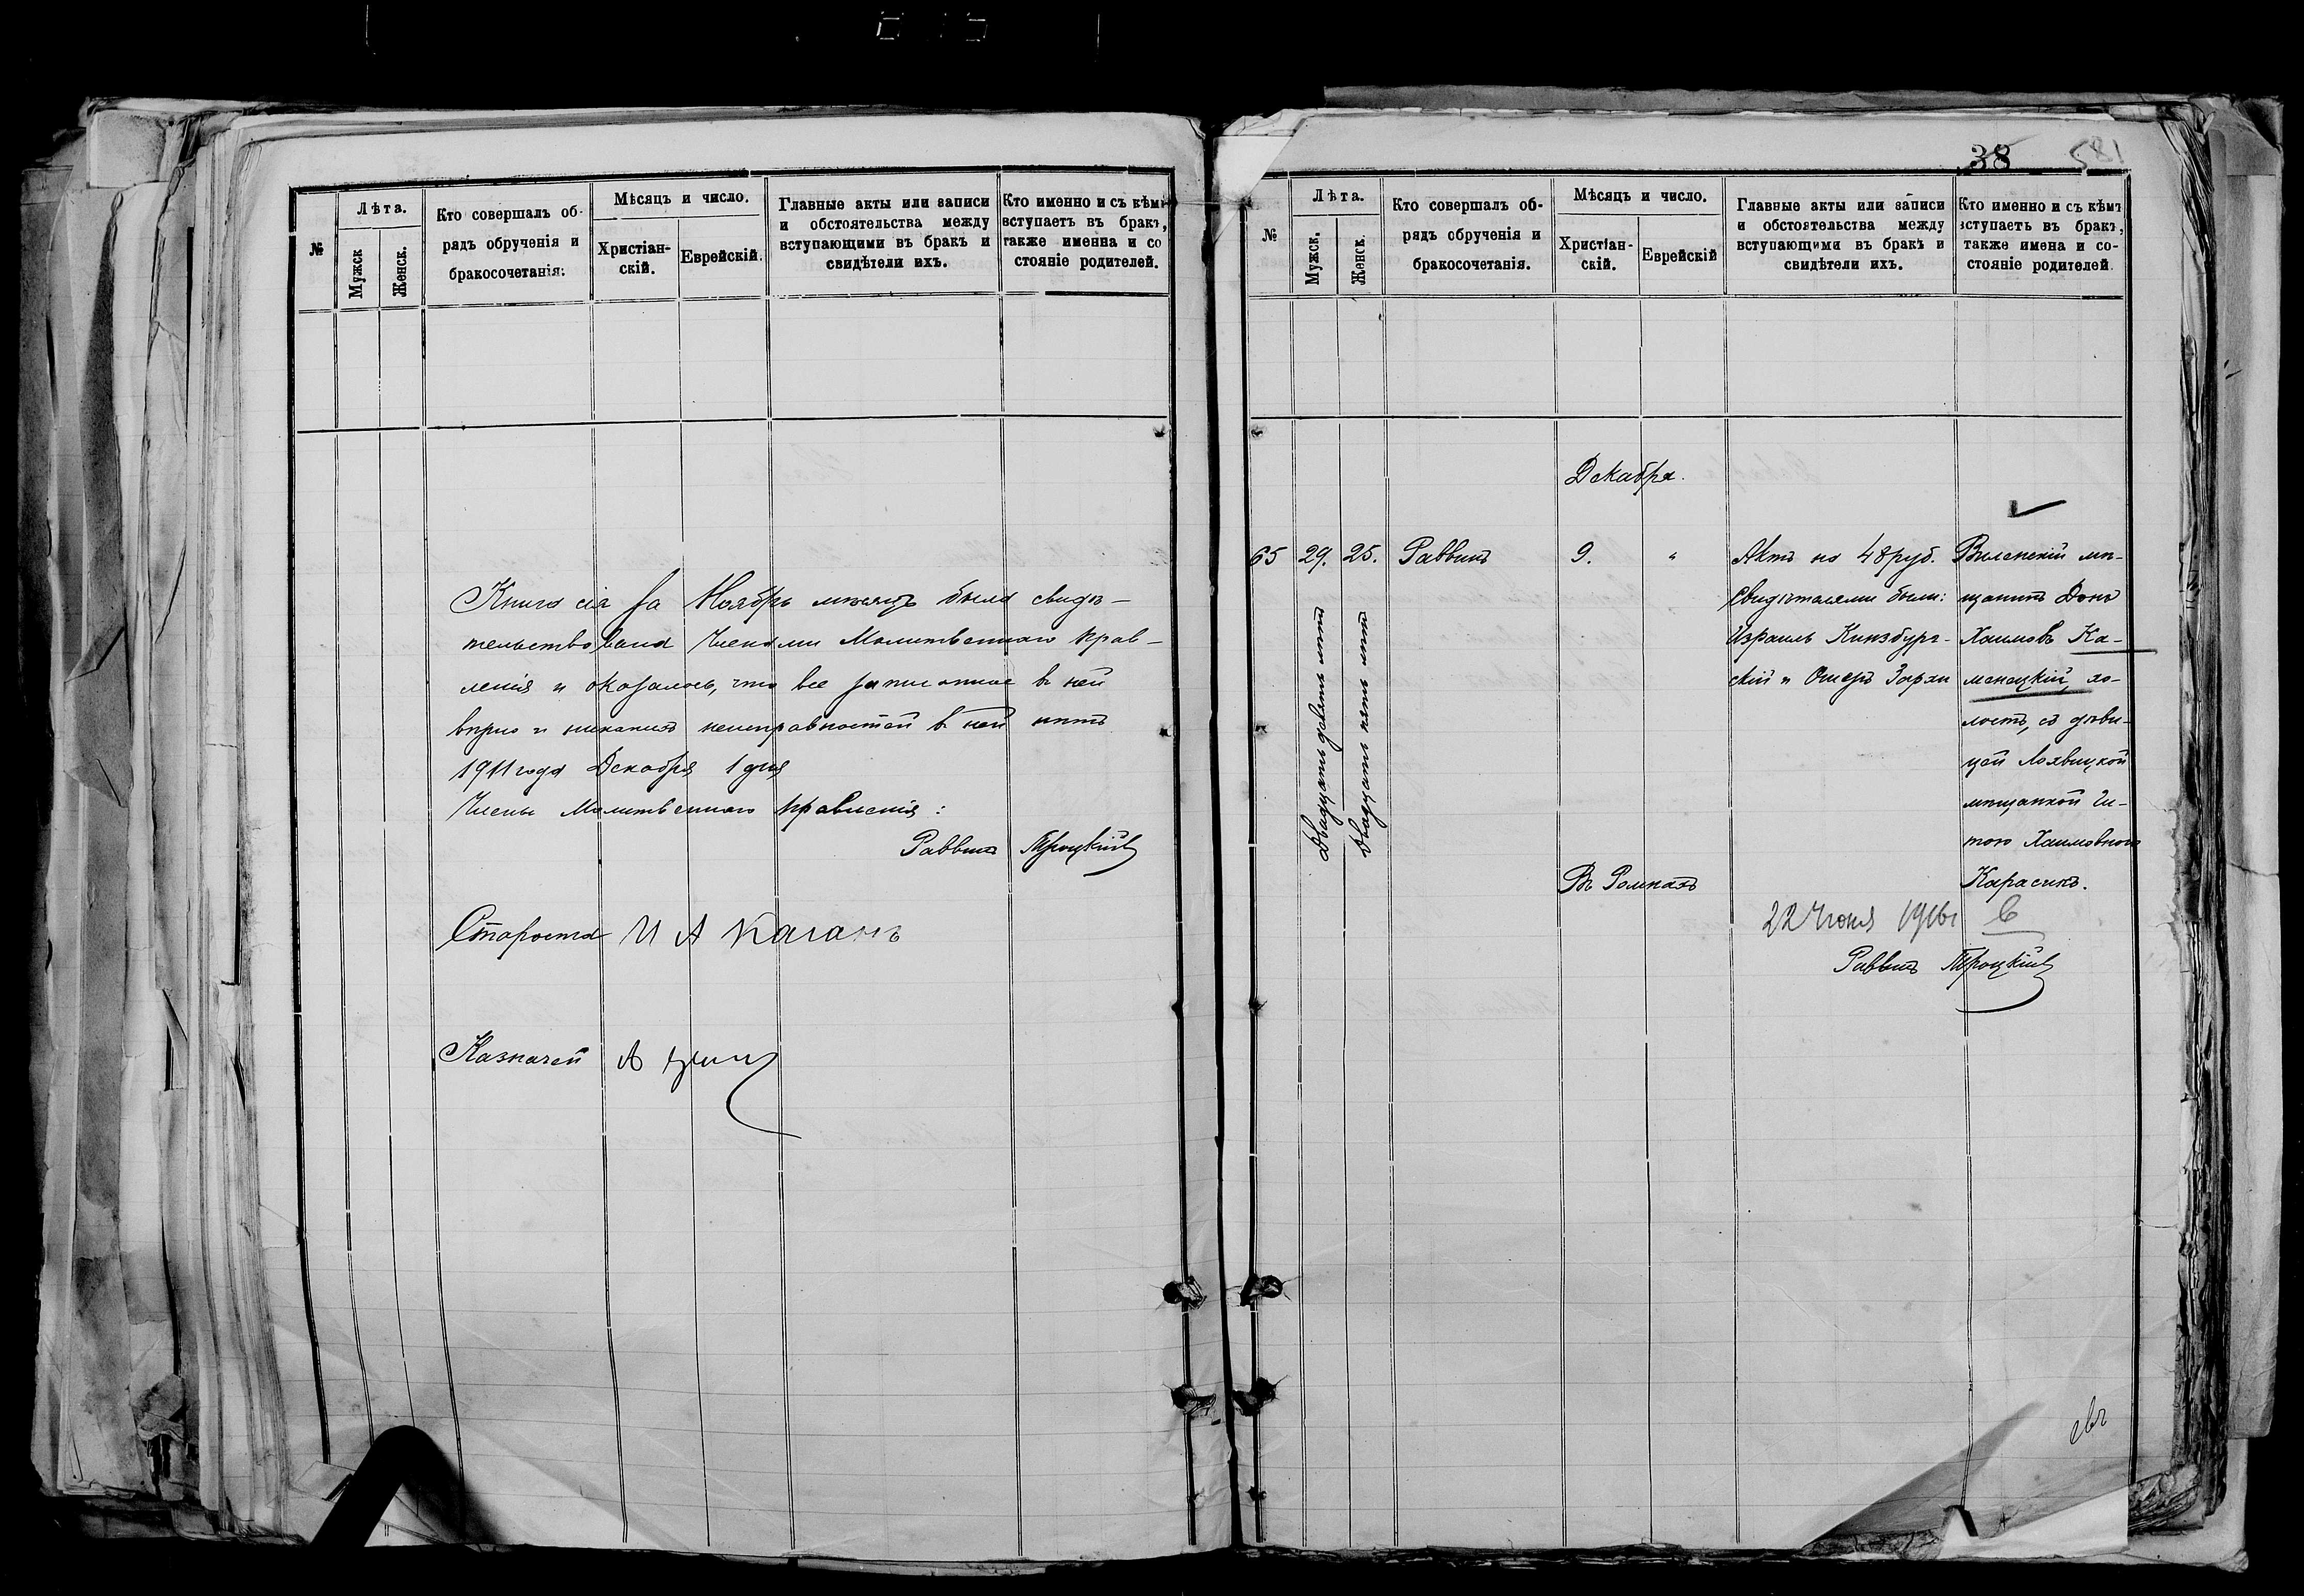 №
Лѣта.
Мужск
Женск.
Кто совершалъ об-
рядъ обрученія и
бракосочетанія.
Мѣсяцъ и число.
Христіан-
скій.
Еврейскій.
Главные акты или записи
и обстоятельства между
вступающими въ бракъ и
свидѣтели ихъ.
Кто именно и съ кѣмъ
вступаетъ въ бракъ,
также именна и со
стояніе родителей.
Книга сія за Ноябрь мѣсяцъ была свидѣ-
тельствована Членами Молитвеннаго прав-
ленія и оказалось, что все записанное въ ней
вѣрно и никакихъ неисправностей въ ней нѣтъ
1911 года Декабря 1 дня
Члены Молитвеннаго правленія:
Раввинъ Троцкій
Староста И А Каганъ
Казначей А
38
581
№
Лѣта.
Мужск.
Женск.
Кто совершалъ об-
рядъ обрученія и
бракосочетанія.
Мѣсяцъ и число.
Христіан-
скій.
Еврейскій
Главные акты или записи
и обстоятельства между
вступающими въ бракъ и
свидѣтели ихъ.
Кто именно и съ кѣмъ
вступаетъ въ бракъ,
также имена и со-
стояніе родителей.
Декабря.
65
29.
Двадцать девять лѣтъ
25.
Двадцать пять лѣтъ
Раввинъ
9.
"
Въ Ромнахъ
Актъ на 48 руб.
Свидѣтелями были:
Израиль Кинзбург-
скій и Ошеръ Зархи
Виленскій мѣ-
щанинъ Донъ
Хаимовъ Ка-
менецкій, хо-
лостъ, съ дѣви-
цей Лохвицкой
мѣщанкой Ги-
тою Хаимовною
Карасикъ.
22 Июня 1916 г
Раввинъ Троцкій